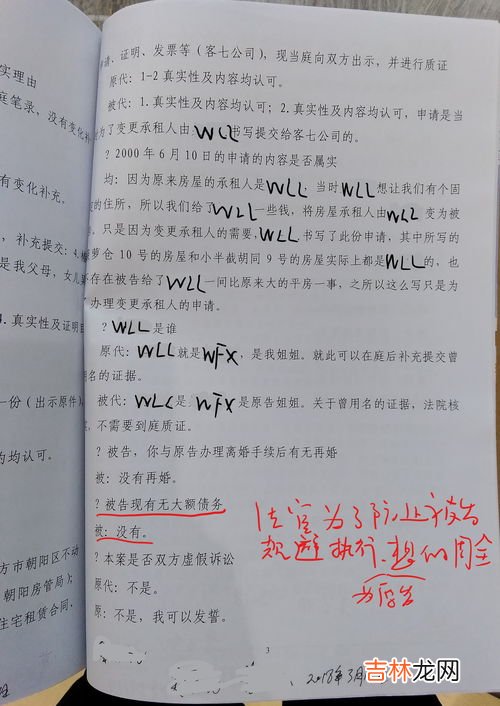 实理由
庭笔录，没有变化补
有变化补充。
，补充提交：4.
是我父母，女儿
4.真实性及证明目
一份（出示原件），
均认可。
方市朝阳区不动
朝阳房管局）；
住宅租赁合同、
申请、证明、发票等（客七公司），现当庭向双方出示，并进行质证
原代：1-2真实性及内容均认可。
被代：1.真实性及内容均认可；2.真实性及内容均认可，申请是当
为了变更承租人由WLL书写提交给客七公司的。
？2000年6月10日的申请的内容是否属实
均：因为原来房屋的承租人是WLL，当时WLL想让我们有个固
的住所，所以我们给了WLL一些钱，将房屋承租人由WLL变为被
，只是因为变更承租人的需要，WLL书写了此份申请，其中所写的
萝仓10号的房屋和小半截胡同9号的房屋实际上都是WLL的，也
存在被告给了WLL一间比原来大的平房一事，之所以这么写只是为
办理变更承租人的申请。
？WLL是谁
原代：WLL就是WFX，是我姐姐。就此可以在庭后补充提交曾
用名的证据。
被代：WLL是WFX是原告姐姐。关于曾用名的证据，法院核
，不需要到庭质证。
？被告，你与原告办理离婚手续后有无再婚
被：没有再婚。
？被告现有无大额债务
被：没有。
？本案是否双方虚假诉讼
原代：不是。
原：不是，我可以发誓。
法官为了防止被告
规避执行，想的周全
为原告
3
2018年3月
吉林龙网